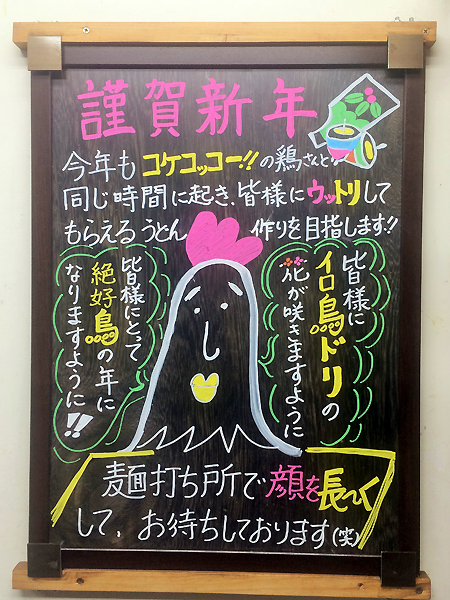 謹賀新年
今年もコケコッコー!!の鶏さんと
同じ時間に起き、皆様にウットリして
もらえるうどん作りを目指します!!
皆様に
イロ鳥ドリの
花が咲きますように
皆様にとって
絶好鳥の年に
なりますように!!
麺打ち所で顔を長〜く
して、お待ちしております(笑)